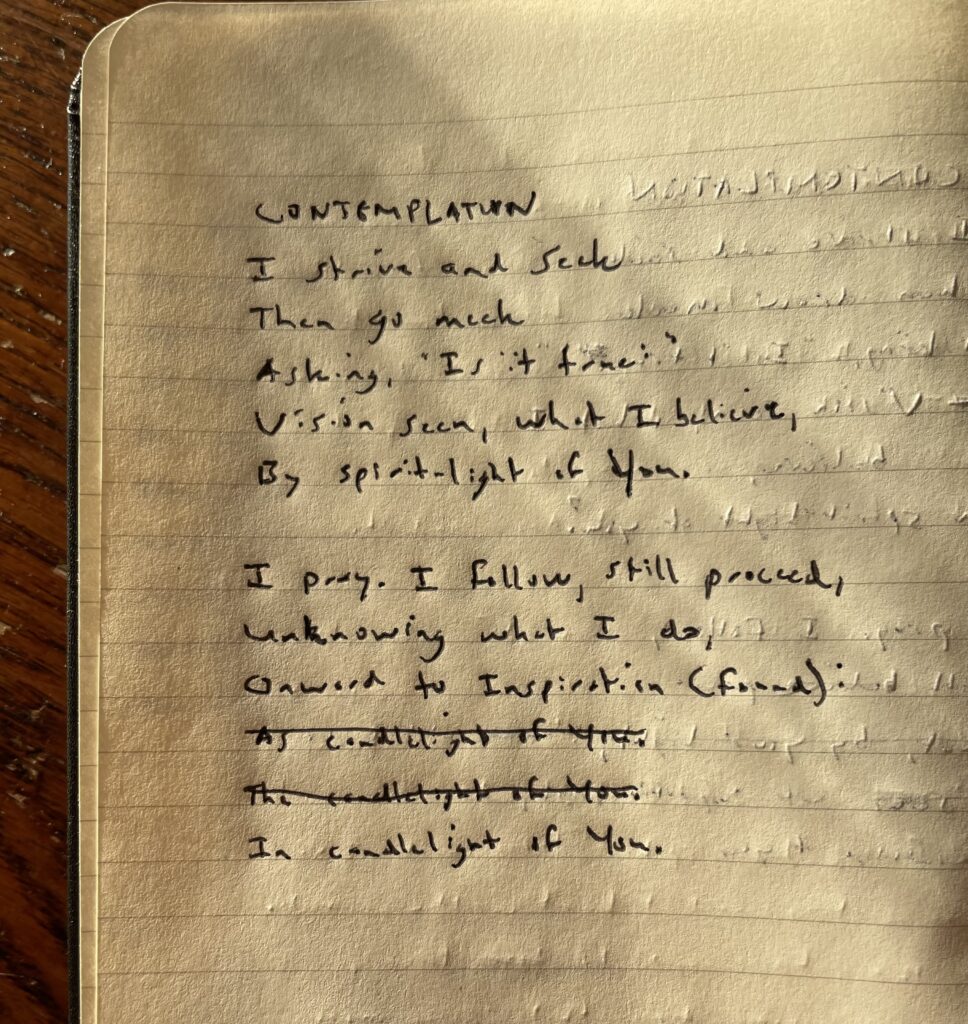 CONTEMPLATION
I strive and Seek
Then go meek
Asking, "Is it true?"
Vision seen, what I believe,
By spirit-light of You.
I pray. I follow, still proceed,
unknowing what I do,
Onward to Inspiration (found):
As candlelight of You.
The candlelight of You.
In candlelight of You.